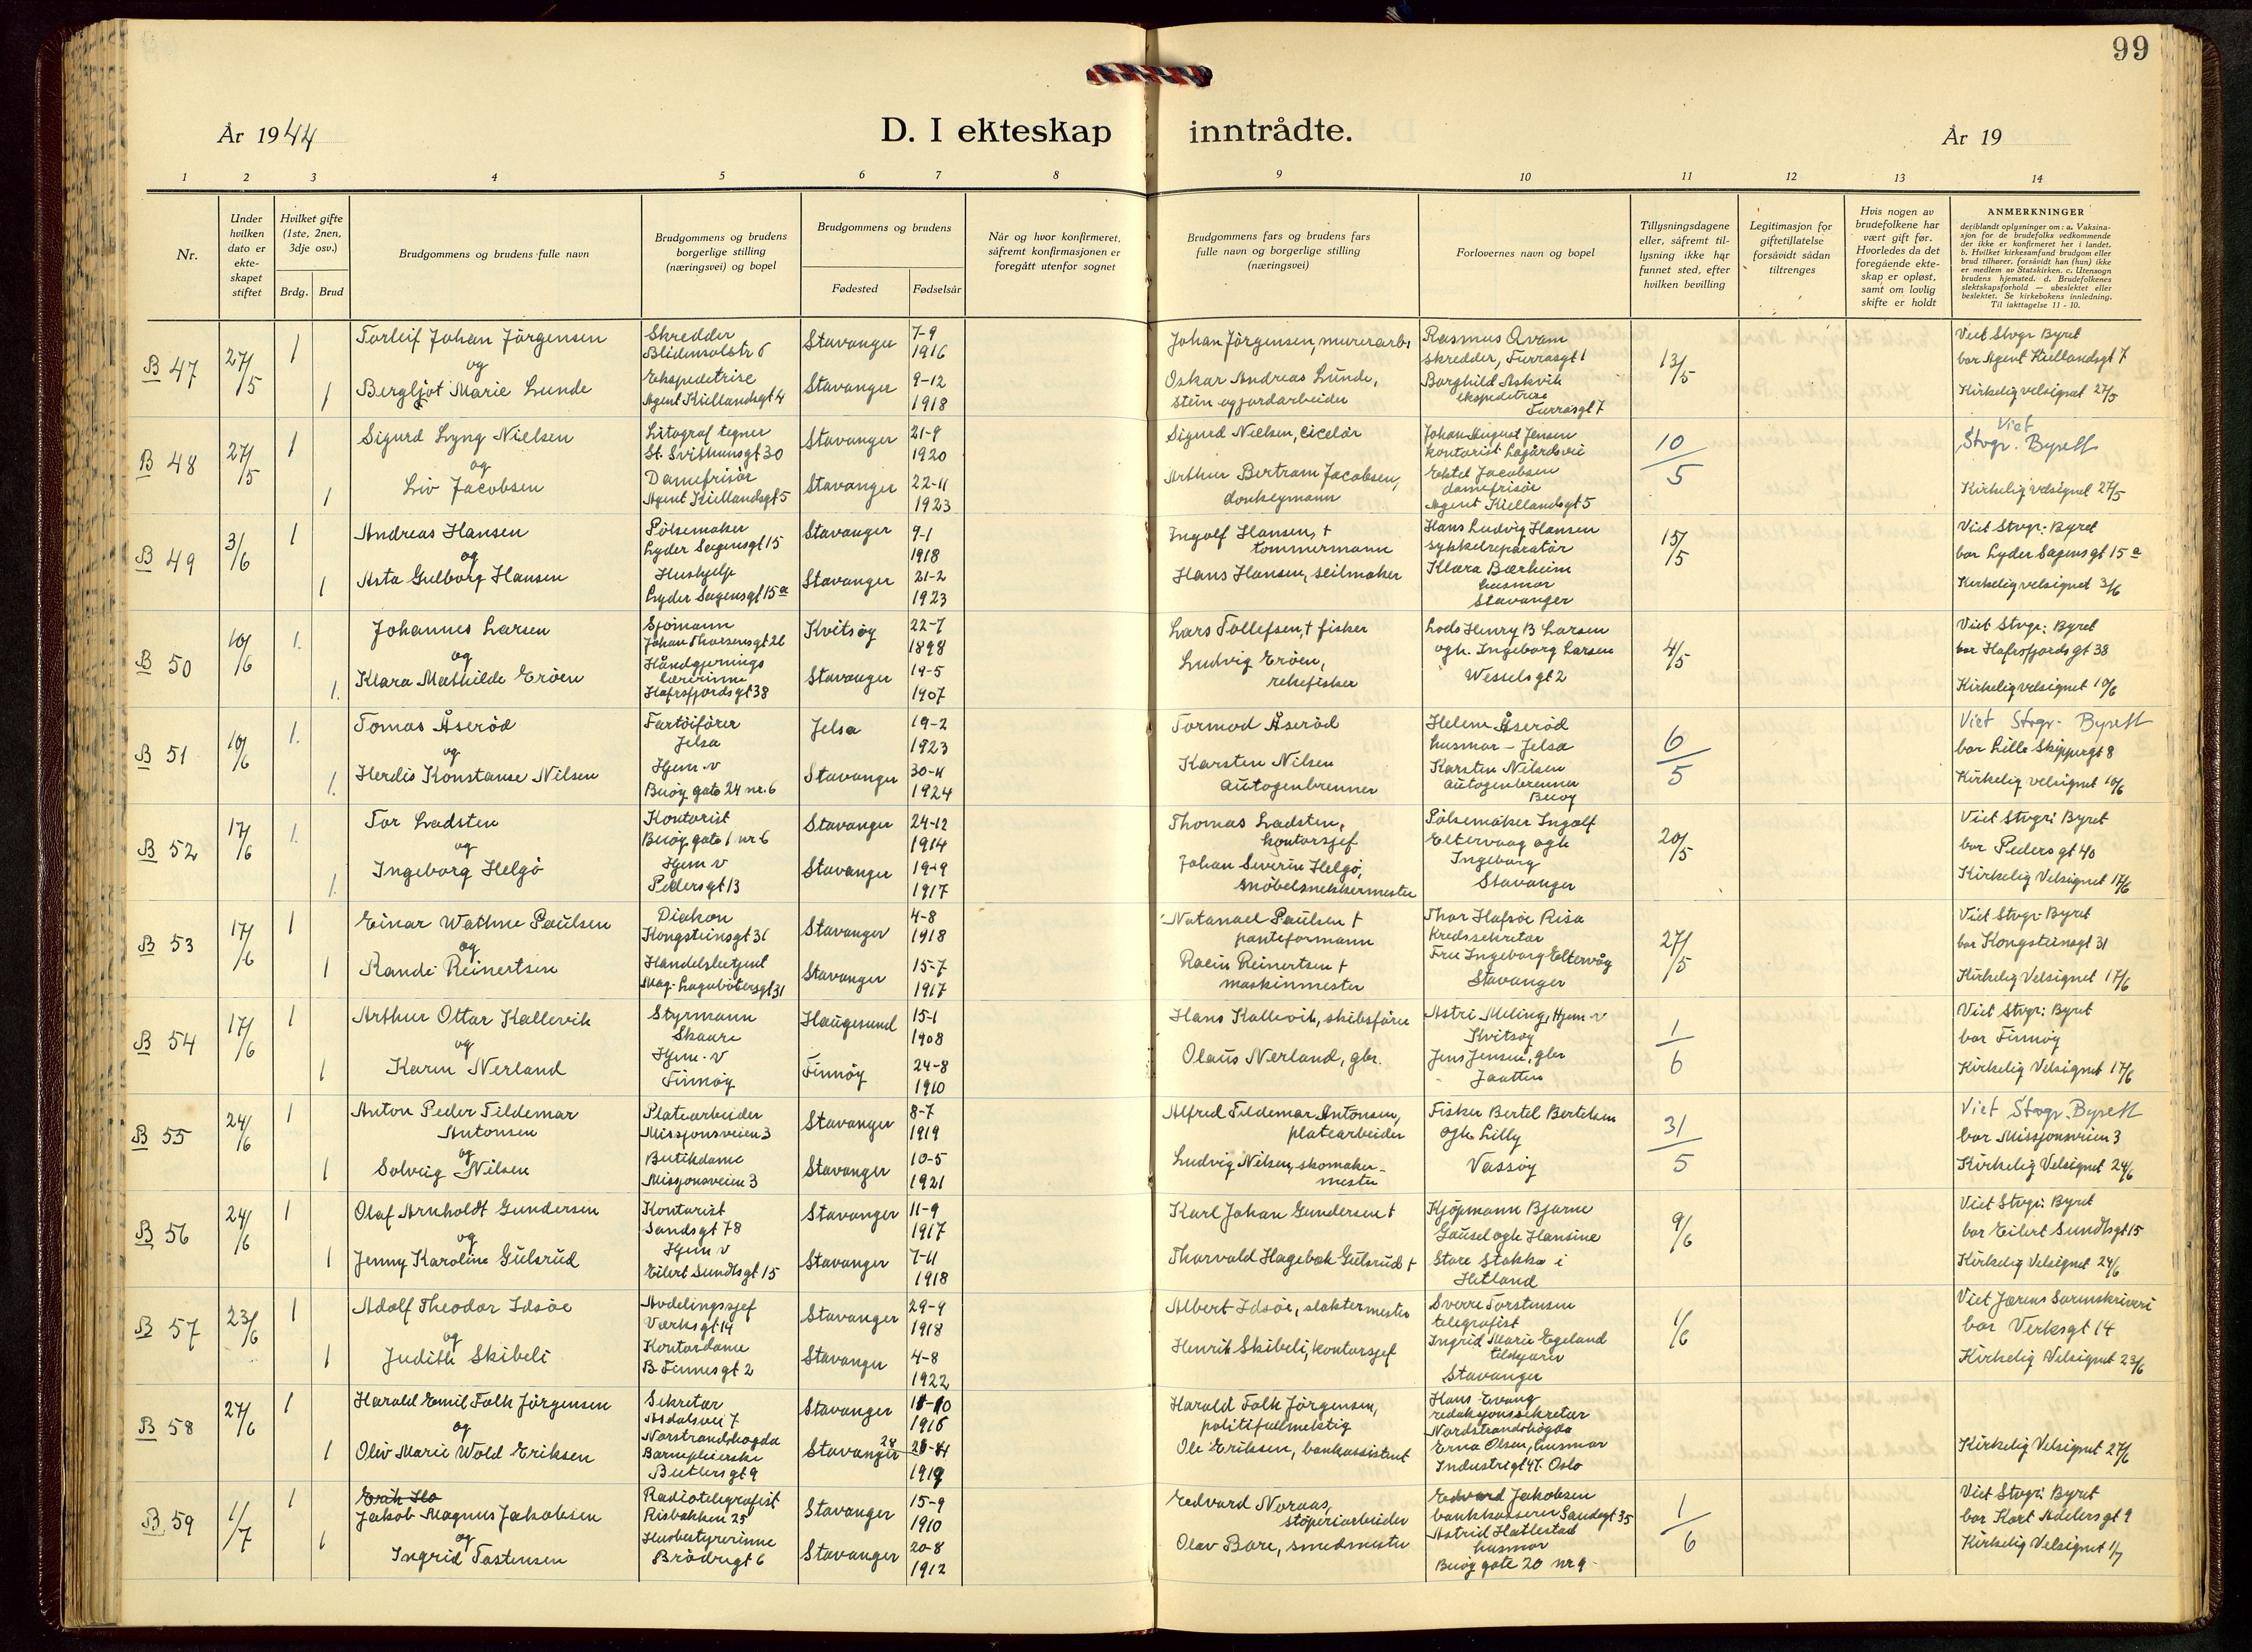 99
År 1944
D. I ekteskap inntrådte.
År 19
1 2 3 4 5 6 7 8 9 10 11 12 13 14
Nr.
Under hvilken dato er ekte-skapet stiftet
Hvilket gifte (1ste, 2nen, 3dje osv.)
Brdg. Brud
Brudgommens og brudens fulle navn
Brudgommens og brudens borgerlige stilling (næringsvei) og bopel
Brudgommens og brudens
Fødested Fødselsår
Når og hvor konfirmeret, såfremt konfirmasjonen er foregått utenfor sognet
Brudgommens fars og brudens fars fulle navn og borgerlige stilling (næringsvei)
Forlovernes navn og bopel
Tillysningsdagene eller, såfremt til-lysning ikke har funnet sted, efter hvilken bevilling
Legitimasjon for giftetillatelse forsåvidt sådan tiltrenges
Hvis nogen av brudefolkene har vært gift før. Hvorledes da det foregående ekte-skap er opløst, samt om lovlig skifte er holdt
ANMERKNINGER
deriblandt oplysninger om: a. Vaksina-sjon for de brudefolks vedkommende der ikke er konfirmeret her i landet. b. Hvilket kirkesamfund brudgom eller brud tilhører, forsåvidt han (hun) ikke er medlem av Statskirken. c. Utensogn brudens hjemsted. d. Brudefolkenes slektskapsforhold — ubeslektet eller beslektet. Se kirkebokens innledning. Til iakttagelse 11 - 10.
B 47 27/5 1 Torleif Johan Jörgensen Skredder Blidensolstr 6 Stavanger 7-9 1916 Johan Jörgensen, murerarb. Rasmus Qvam skredder, Furrasgt 1 13/5 Viet Stvgr Byret
og
1 Bergljot Marie Lunde Ekspeditrise Agent Kiellandsgt 4 Stavanger 9-12 1918 Oskar Andreas Lunde, stein og jordarbeider Borghild Askvik ekspeditrise Furrasgt 7 bor Agent Kiellandsgt 7 Kirkelig velsignet 27/5
B 48 27/5 1 Sigurd Lyng Nielsen Litograf tegner St. Svithunsgt 30 Stavanger 21-9 1920 Sigurd Nielsen, Johan August Jensen kontorist Lagårdsvei 10/5 Viet Stvgr. Byrett
og
1 Liv Jacobsen Damefrisör Agent Kiellandsgt 5 Stavanger 22-11 1923 Arthur Bertram Jacobsen, donkeymann Jacobsen damefrisör Agent Kiellandsgt 5 Kirkelig velsignet 27/5
B 49 3/6 1 Andreas Hansen Pölsemaker Lyder Sagensgt 15 Stavanger 9-1 1918 Ingolf Hansen, † tömmermann Hans Ludvig Hansen sykkelreparatör 15/5 Viet Stvgr. Byret
og
1 Asta Gulborg Hansen Hushjelp Lyder Sagensgt 15a Stavanger 21-2 1923 Hans Hansen, seilmaker Klara Bærheim husmor Stavanger bor Lyder Sagens gt 15a Kirkelig velsignet 3/6
B 50 10/6 1. Johannes Larsen Sjömann Johan Thorsensgt 26 Kvitsøy 22-7 1898 Lars Tollefsen, † fisker Lods Henry B Larsen ogh. Ingeborg Larsen Wesselsgt 2 4/5 Viet Stvgr: Byret
og
1. Klara Mathilde Eröen Håndgjernings lærerinne Hafrsfjordsgt 38 Stavanger 19-5 1907 Ludvig Eröen, rekefisker bor Hafrsfjords gt 38 Kirkelig velsignet 10/6
B 51 10/6 1. Tomas Åseröd Fartöiförer Jelsa Jelsa 19-2 1923 Tormod Åseröd Helene Åseröd husmor - Jelsa 6/5 Viet Stvgr. Byrett
og
1. Herdis Konstanse Nilsen Hjem. v Buöy gate 24 nr. 6 Stavanger 30-11 1924 Karsten Nilsen autogenbrenner Karsten Nilsen autogenbrenner Buøy bor Lille Skippergt 8 Kirkelig velsignet 10/6
B 52 17/6 1. Tor Ladsten Kontorist Buöy gate 1 nr 6 Stavanger 24-12 1914 Thomas Ladsten, kontorsjef Pölsemaker Ingolf Eltervaag ogh Ingeborg Stavanger 20/5 Viet Stvgr: Byret
og
1. Ingeborg Helgö Hjem v Pedersgt 13 Stavanger 19-9 1917 Johan Severin Helgö, möbelsnekkermester bor Pedersgt 40 Kirkelig Velsignet 17/6
B 53 17/6 1 Einar Wathne Paulsen Diakon Kongsteinsgt 31 Stavanger 4-8 1918 Natanael Paulsen † panteformann Thor Hafsöe Risa Kredssekretær 27/5 Viet Stvgr. Byret
og
1 Randi Reinertsen Handelsbetjent Mag. Lagabötersgt 31 Stavanger 15-7 1917 Reinertsen † maskinmester Fru Ingeborg Eltervåg Stavanger bor Kongsteinsgt 31 Kirkelig Velsignet 17/6
B 54 17/6 1 Arthur Ottar Kallevik Styrmann Skaare Haugesund 15-1 1908 Hans Kallevik, skibsförer Astri Meling, Hjem v Kvitsøy 1/6 Viet Stvgr: Byret
og
1 Karen Nerland Hjem. v Finnøy Finnøy 24-8 1910 Olaus Nerland, gbr. Jens Jensen, gbr Jaatten bor Finnøy Kirkelig Velsignet 17/6
B 55 24/6 1 Anton Peder Tildemar Antonsen Platearbeider Missjonsveien 3 Stavanger 8-7 1919 Alfred Tildemar Antonsen, platearbeider Fisker Bertel Bertelsen Ogh Lilly Vassøy 31/5 Viet Stvgr. Byrett
og
1 Solveig Nilsen Butikdame Misjonsveien 3 Stavanger 10-5 1921 Ludvig Nilsen, skomaker-mester bor Missjonsveien 3 Kirkelig Velsignet 24/6
B 56 24/6 1 Olaf Arnholdt Gundersen Kontorist Sandsgt 78 Stavanger 11-9 1917 Karl Johan Gundersen † Kjöpmann Bjarne Gausel ogh Hansine 9/6 Viet Stvgr. Byret
og
1 Jenny Karoline Gulsrud Hjem v Eilert Sundtsgt 15 Stavanger 7-11 1918 Thorvald Hagebak Gulsrud † Store Stokka i Hetland bor Eilert Sundtsgt 15 Kirkelig Velsignet 24/6
B 57 23/6 1 Adolf Theodor Idsöe Avdelingssjef Verksgt 14 Stavanger 29-9 1918 Albert Idsöe, slaktermester Sverre Torstensen telegrafist 1/6 Viet Jærens Sorenskriveri
og
1 Judith Skibeli Kontordame B Finnesgt 2 Stavanger 4-8 1922 Henrik Skibeli, kontorsjef Ingrid Marie Egeland Stavanger bor Verksgt 14 Kirkelig Velsignet 23/6
B 58 27/6 1 Harald Emil Falk Jörgensen Sekretær Asdalsvei 7 Norstrandshögda Stavanger 11-10 1916 Harald Falk Jörgensen, politifullmektig Hans Evang redaksjonssekretær Nordstrandshögda
og
1 Oliv Marie Wold Eriksen Barnepleierske Butlersgt 9 Stavanger 28-11 1919 Ole Eriksen, bankassistent Erna Olsen, husmor Industrigt 47. Oslo Kirkelig Velsignet 27/6
B 59 1/7 1 Jakob Magnus Jakobsen Radiotelegrafist Risbakken 25 Stavanger 15-9 1910 Edvard Noraas, stöperiarbeider Edvard Jakobsen bankkasserer Sandsgt 35 1/6 Viet Stvgr: Byret
og
1 Ingrid Tostensen Husbestyrerinne Brödregt 6 Stavanger 20-8 1912 Olav Bore, smedmester Astrid Hatlestad husmor Buöy gate 20 nr 9 bor Kort Adelersgt 9 Kirkelig Velsignet 1/7